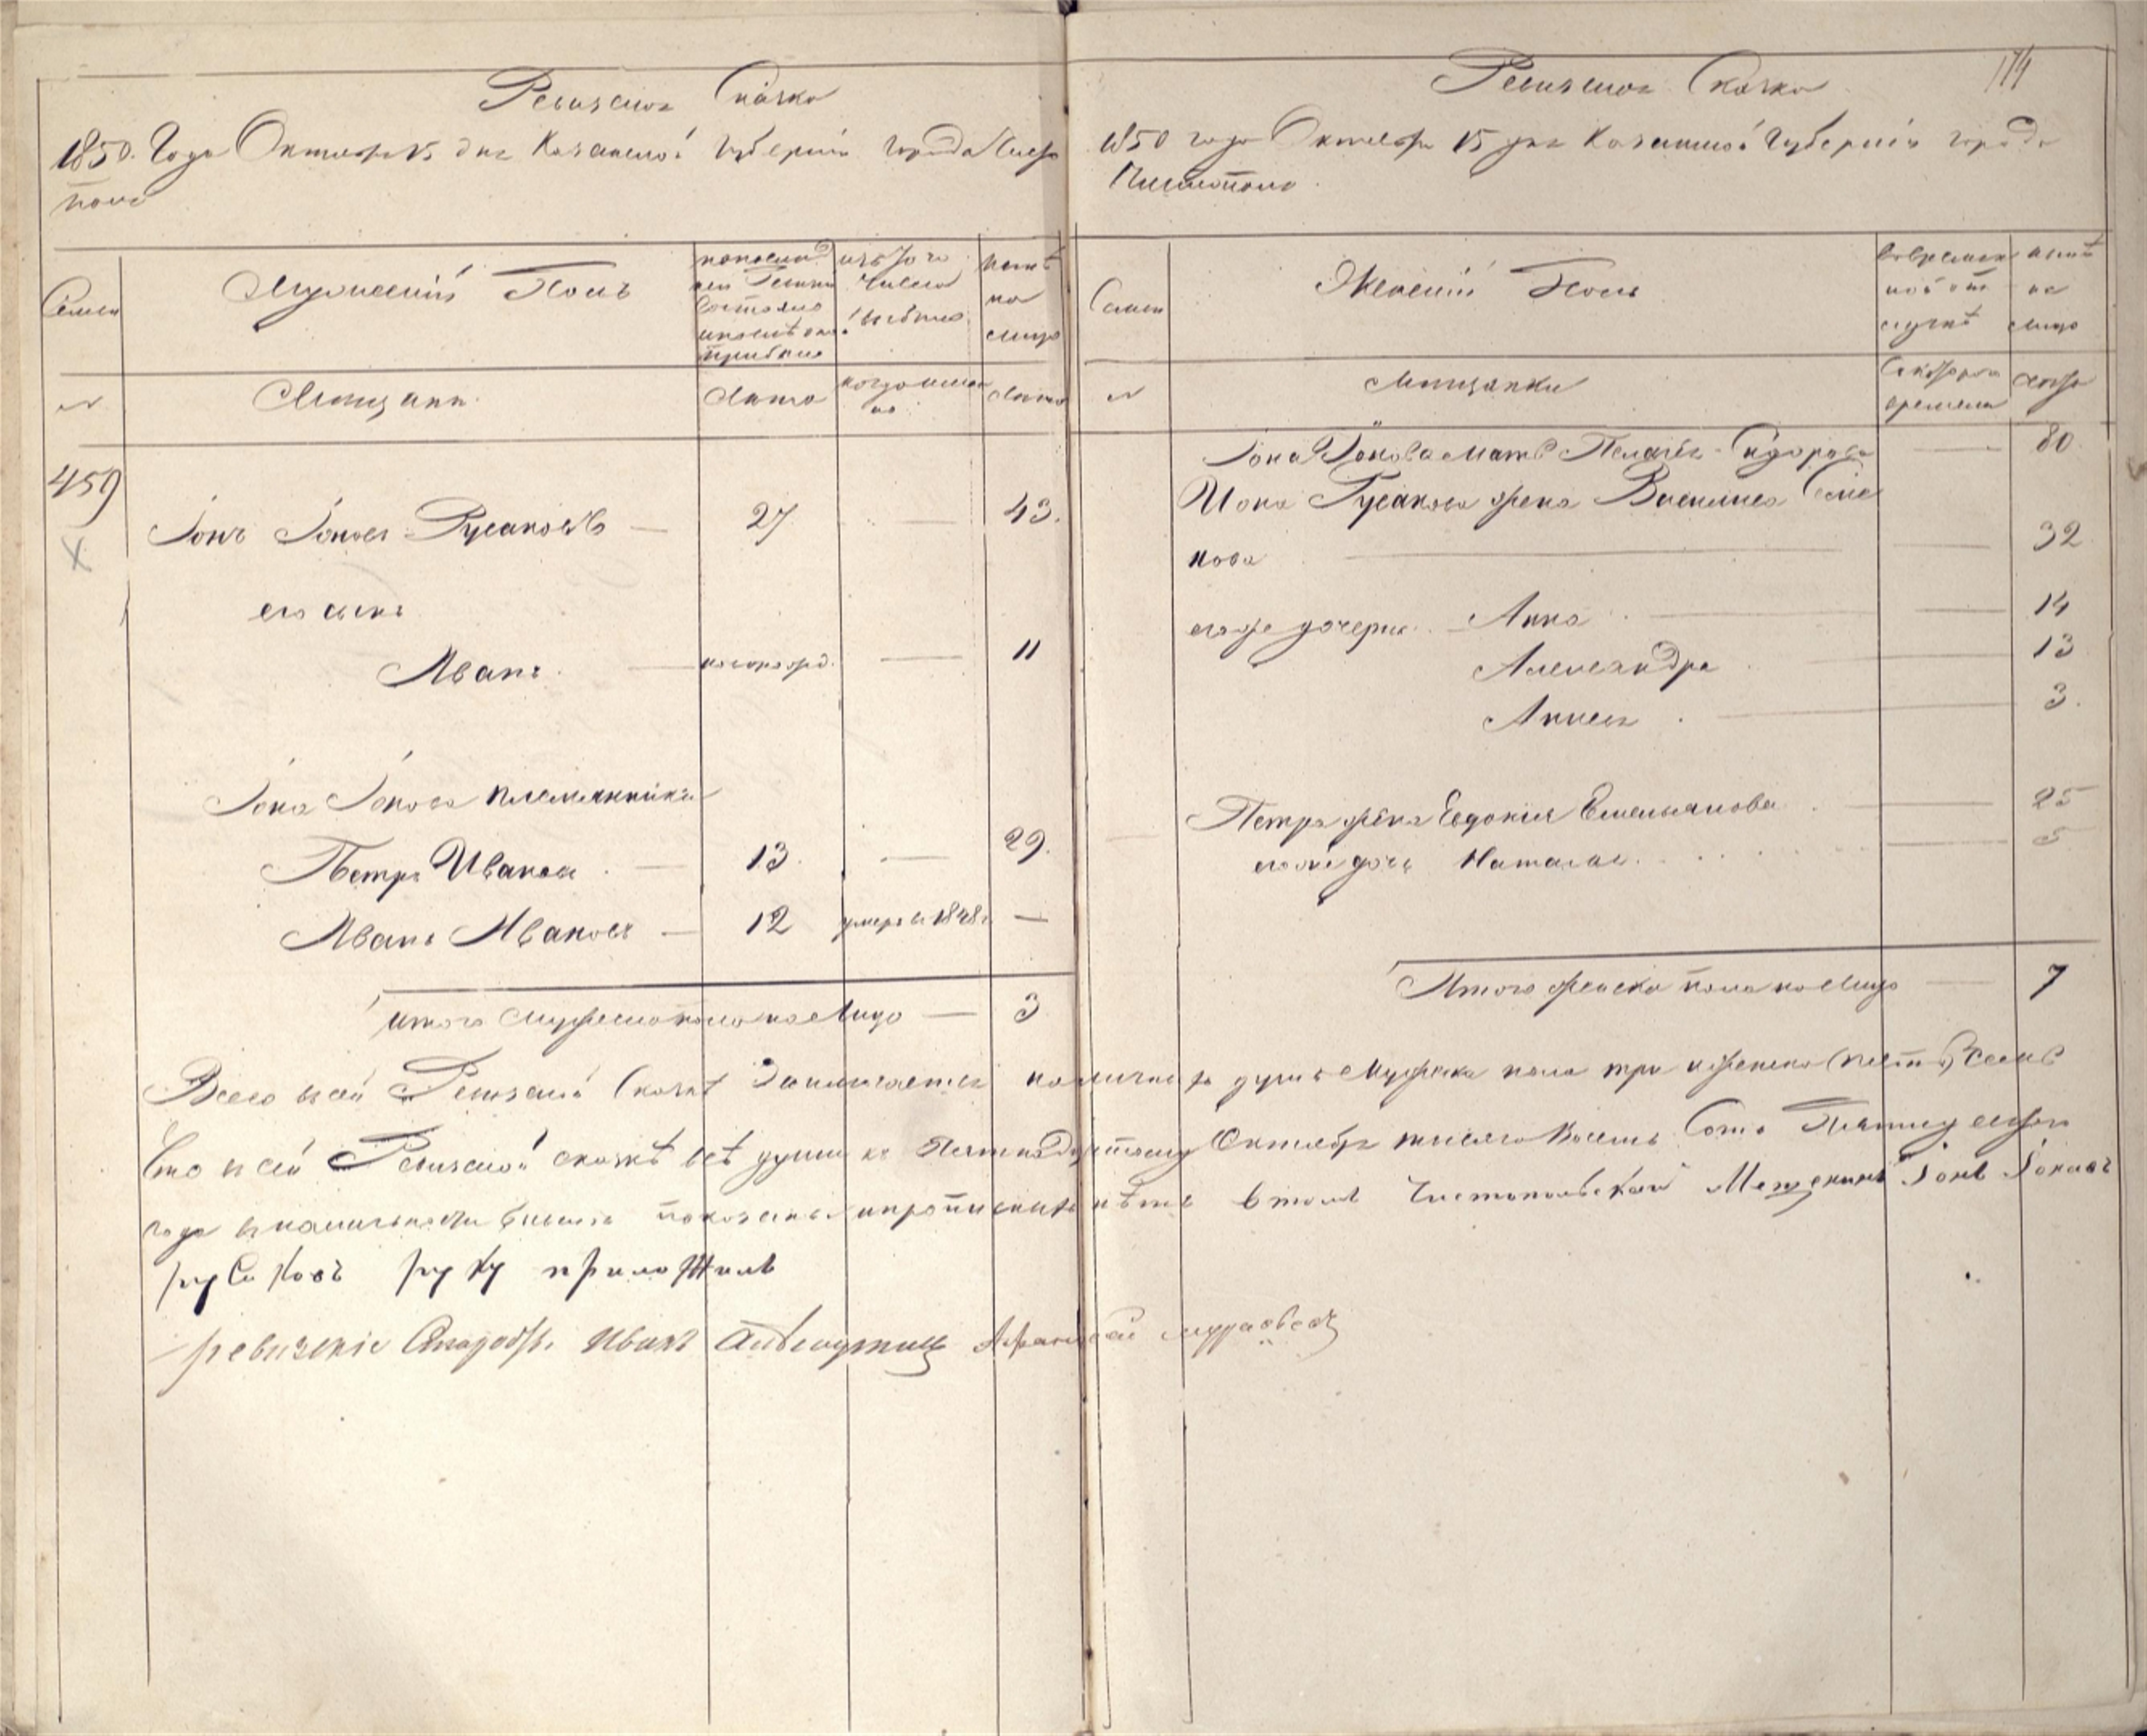 Ревизская Сказка
1850. Года Октября 15 дня Казанской Губерніи города Чисто
поля
Семьи
Мужескій Полъ
по последней Ревизіи состояло и после оной прибыло
изъ того числа выбыло
ныне на лицо
№
Мещане
Лета
когда именно
Лета
459
Іонъ Іоновъ Русаковъ — 27 — 43.
его сынъ
Иванъ — новорожд. — 11
Іона Іонова племянники
Петръ Ивановъ — 13. — 29.
Иванъ Ивановъ — 12 умеръ въ 1848 г —
Итого Мужеска пола на Лицо — 3
114
Ревизская Сказка
1850 года Октября 15 дня Казанской Губерніи города
Чистополя.
Семьи
Женскій Полъ
во временной отлучкѣ
нынѣ на лицо
№
Мещанки
Съ котораго времени
Лета
Іона Іонова мать Пелагея Сидорова — 80
Иона Русакова жена Василиса Семе
нова — 32
его же дочери Анна — 14
Александра — 13
Анисья — 3.
Петра жена Евдокия Емельянова — 25
его же дочь Наталья — 5
Итого женска пола на Лицо — 7
Всего в сей Ревизской Сказке Заключается наличныхъ душъ Мужска пола три и женска Семь
Что в сей Ревизской сказкѣ всѣ души къ Пятнадцатому Октября тысяча Восемь Сотъ Пятидесятаго
года в наличности бывшие показаны и прописныхъ нѣтъ в томъ Чистопольской Мещенинъ Іонъ Іоновъ
русаковъ руку приложилъ
Иванъ